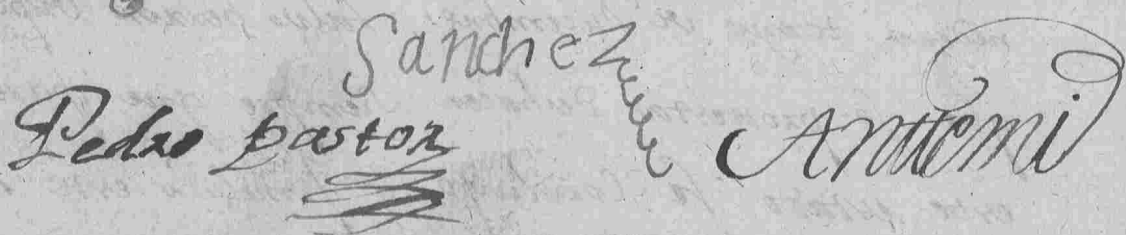 Sanchez
Pedro pastor Anttemi